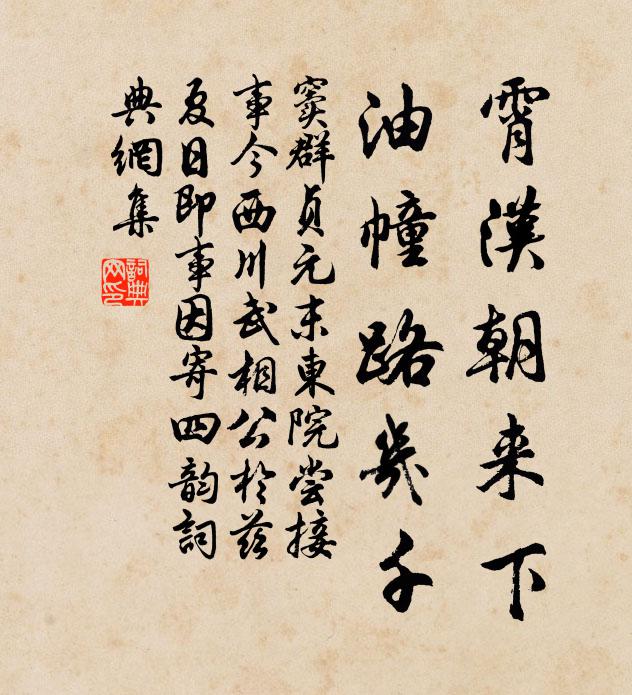 霄漢朝来下
油幢路幾千
竇群貞元末東院嘗接
事今西川武相公於茲
夏日即事因寄四韵詞
典網集
詞典
网印